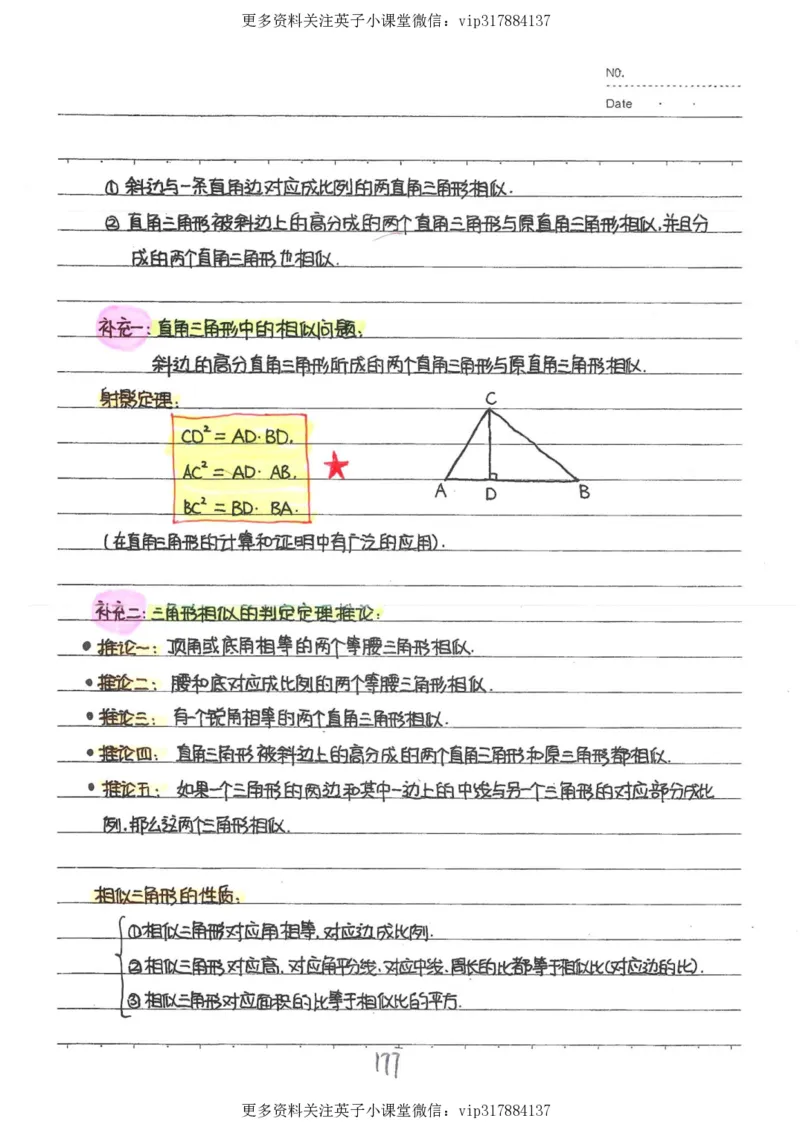 更多资料关注英子小课堂微信：vip317884137
NO.
Date
① 斜边与一条直角边对应成比例的两直角三角形相似.
② 直角三角形被斜边上的高分成的两个直角三角形与原直角三角形相似,并且分
成的两个直角三角形也相似.
补充一：直角三角形中的相似问题：
斜边的高分直角三角形所成的两个直角三角形与原直角三角形相似.
射影定理：
CD²=AD·BD.
AC²=AD·AB.
BC²=BD·BA.
C
A
D
B
(在直角三角形的计算和证明中有广泛的应用).
补充二：三角形相似的判定定理推论：
• 推论一：顶角或底角相等的两个等腰三角形相似.
• 推论二：腰和底对应成比例的两个等腰三角形相似.
• 推论三：有一个锐角相等的两个直角三角形相似.
• 推论四：直角三角形被斜边上的高分成的两个直角三角形和原三角形都相似.
• 推论五：如果一个三角形的两边和其中一边上的中线与另一个三角形的对应部分成比
例,那么这两个三角形相似.
相似三角形的性质：
①相似三角形对应角相等,对应边成比例.
②相似三角形对应高,对应角平分线,对应中线,周长的比都等于相似比(对应边的比).
③相似三角形对应面积的比等于相似比的平方.
177
更多资料关注英子小课堂微信：vip317884137